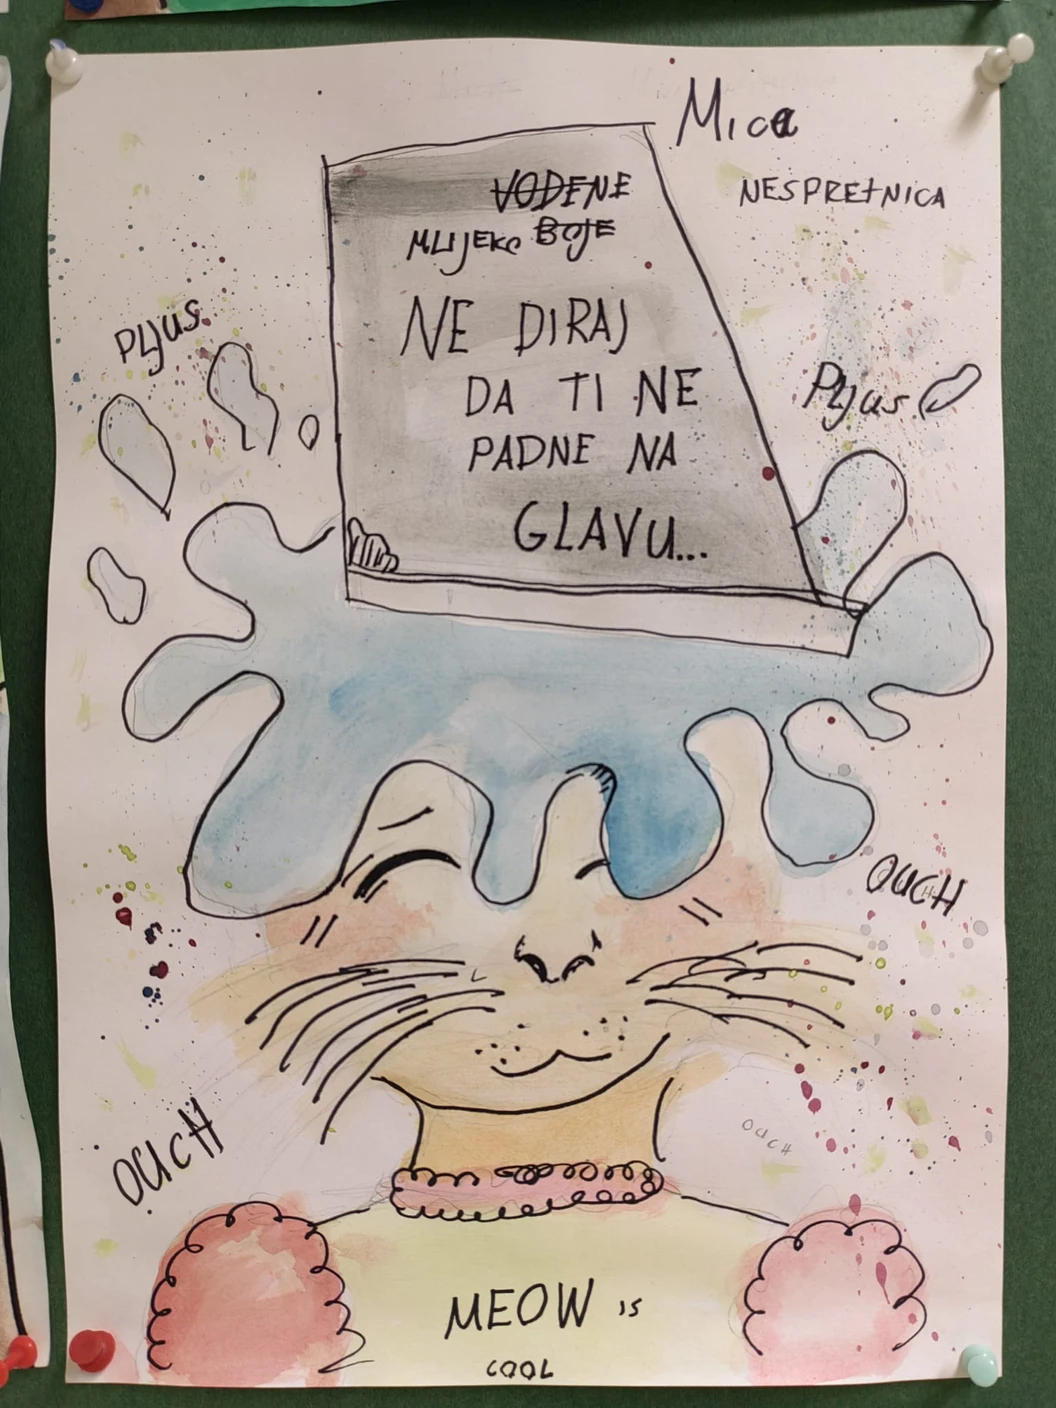 Mica
NESPRETNICA
VODENE
MLIJEKO BOJE
NE DIRAJ
DA TI NE
PADNE NA
GLAVU...
PLJUS
PLJUS
OUCH
OUCH
OUCH
MEOW IS
COOL